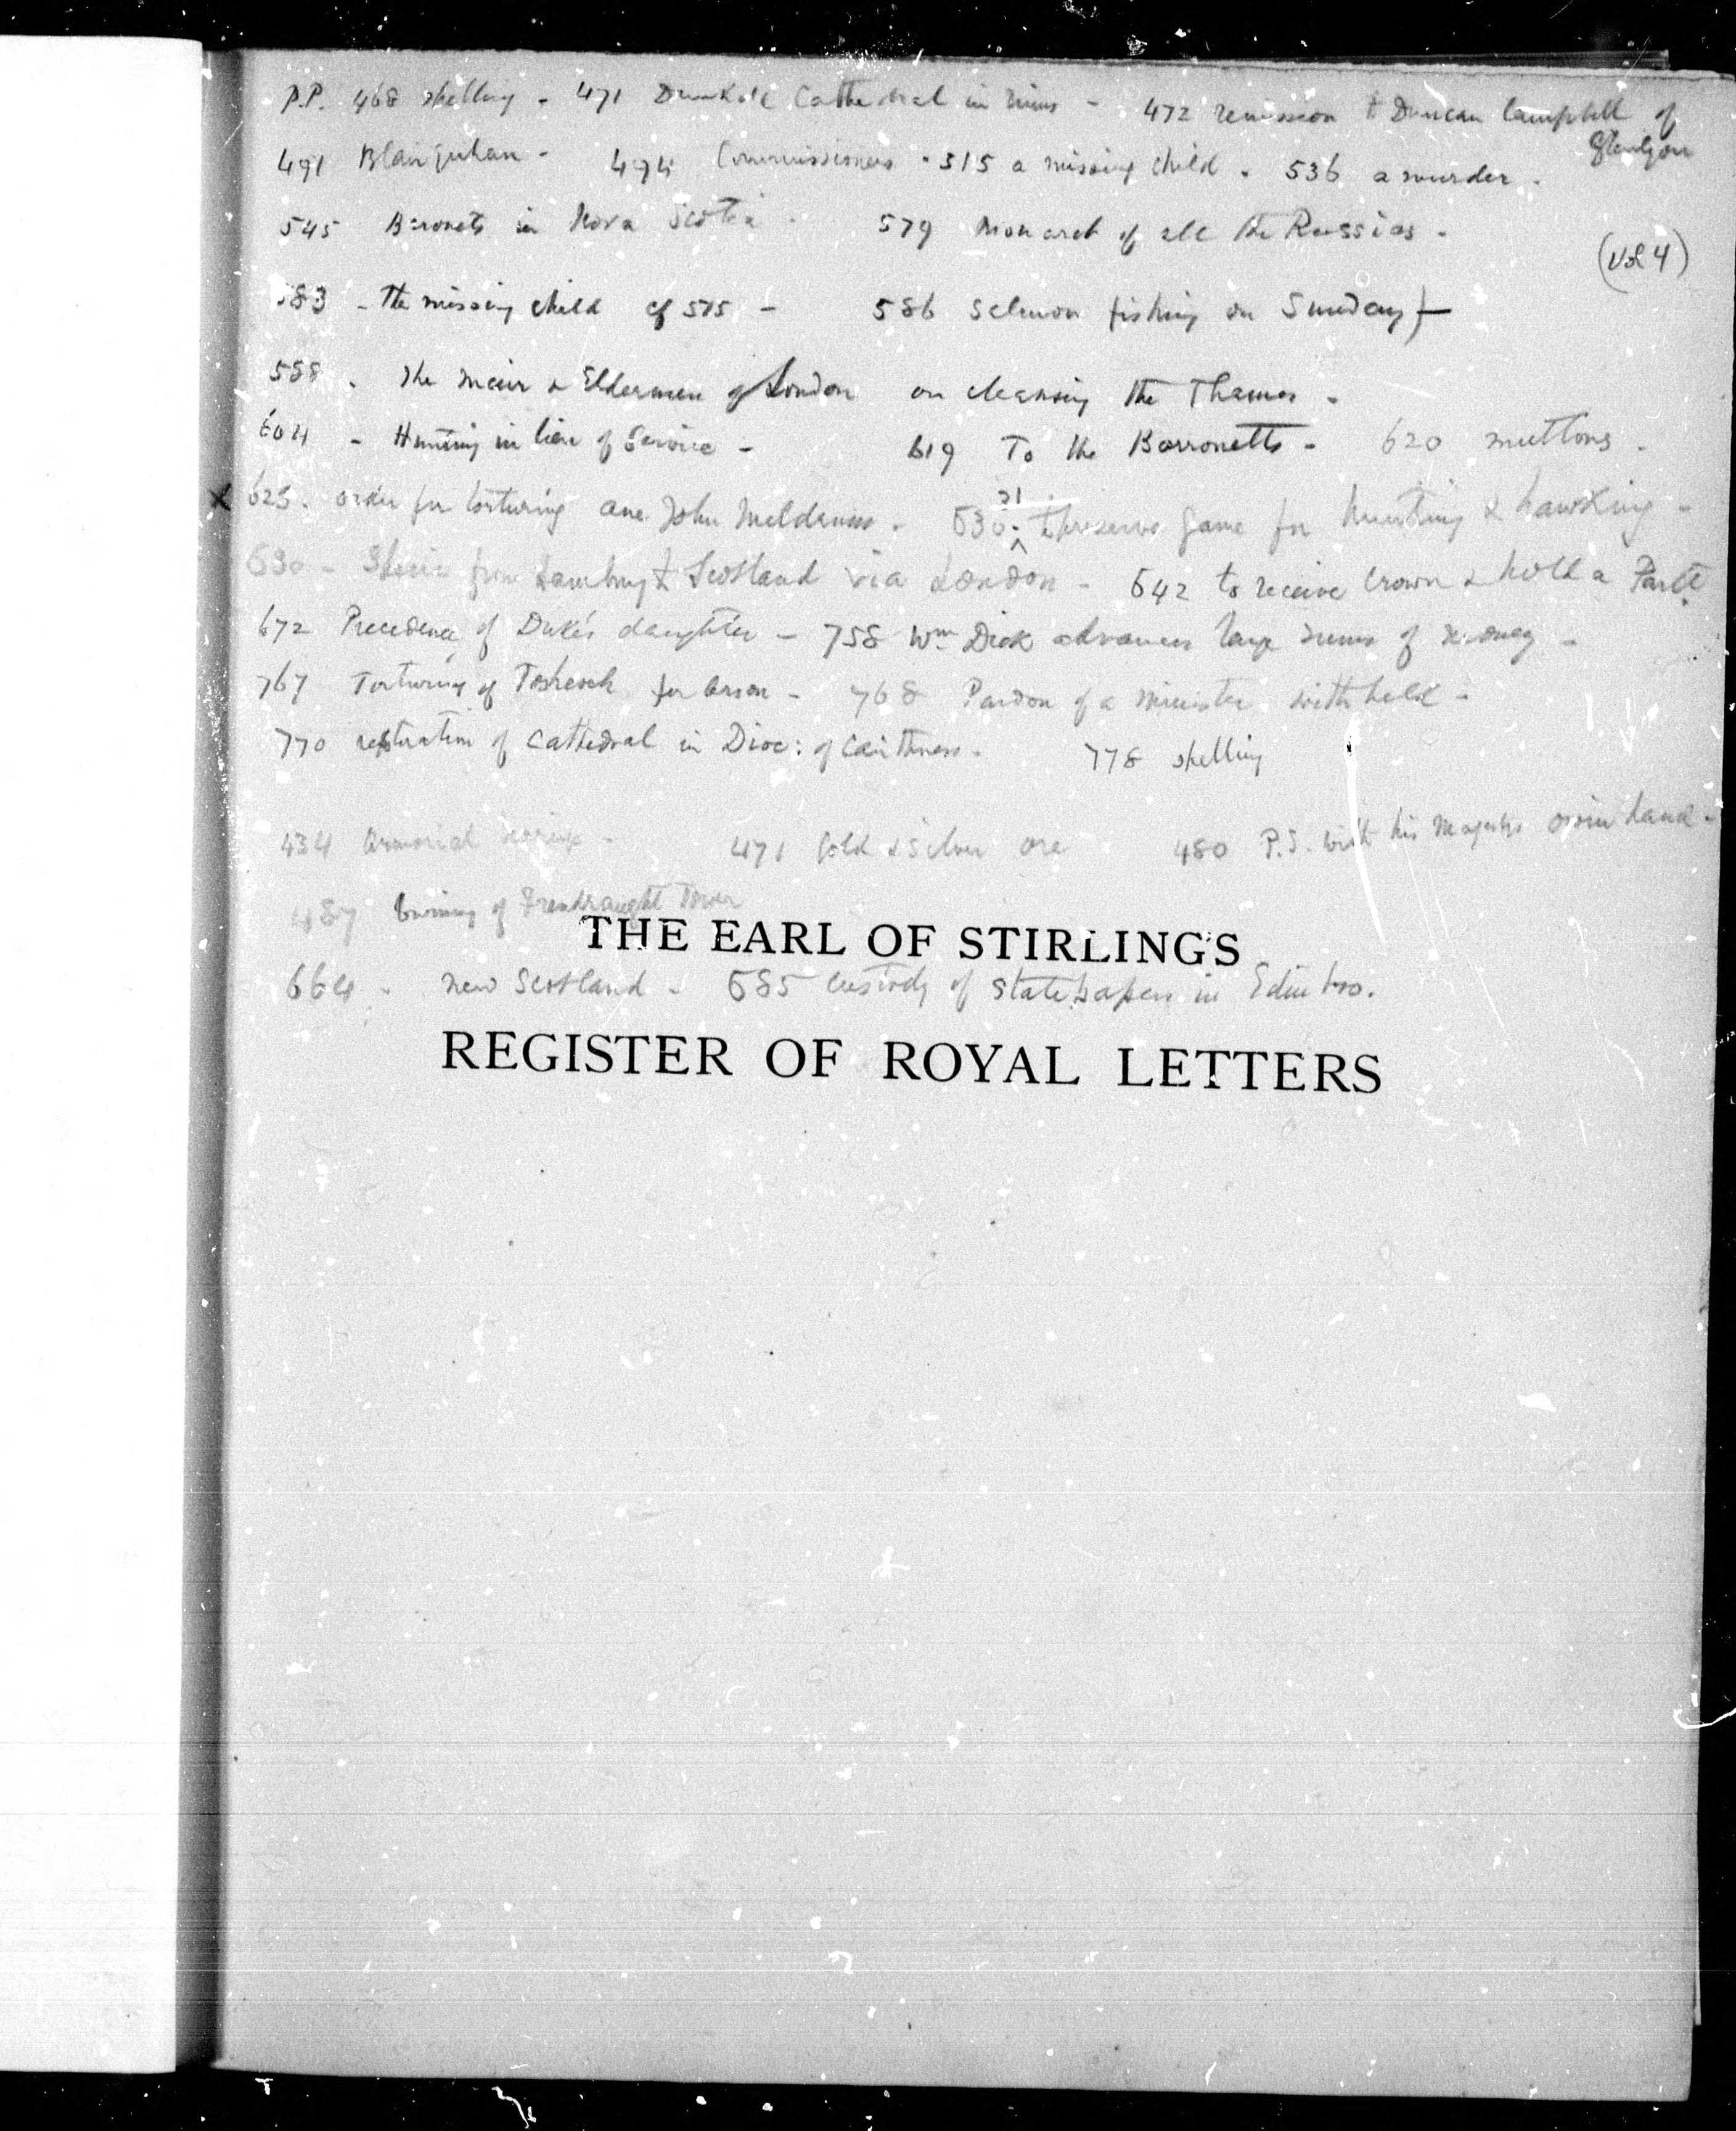 P.P. 468 spelling - 471 Dunkeld Cathedral in ruins - 472 remission to Duncan Campbell of
Glenlyon
491 Blairquhan - 494 Commissioners - 515 a missing child - 536 a murder -
545 Baronets in Nova Scotia - 579 Monarch of all the Russias -
(Vol 4)
583 - The missing child of 515 - 586 Salmon fishing on Sunday -
588 - The Maior & Eldermen of London on cleansing the Thames -
604 - Hunting in lieu of Service - 619 To the Barronetts - 620 muttons -
X 625. order for torturing ane John Meldrum - 630. 31 to preserve game for hunting & hawking -
630 - from Hamburg to Scotland via London - 642 to receive Crown & hold a Parlt.
672 Precedence of Duke's daughter - 758 Wm Dick advances large sums of money -
767 Torturing of Tosheoch for Arson - 768 Pardon of a Minister withheld -
770 restoration of Cathedral in Dioc: of Caithness - 778 spelling
434 Armorial bearings - 471 Gold & Silver ore 480 P.S. with his Majestys own hand -
487 burning of Frendraught Tower
THE EARL OF STIRLING'S
664 - New Scotland - 685 custody of State papers in Edinbro.
REGISTER OF ROYAL LETTERS